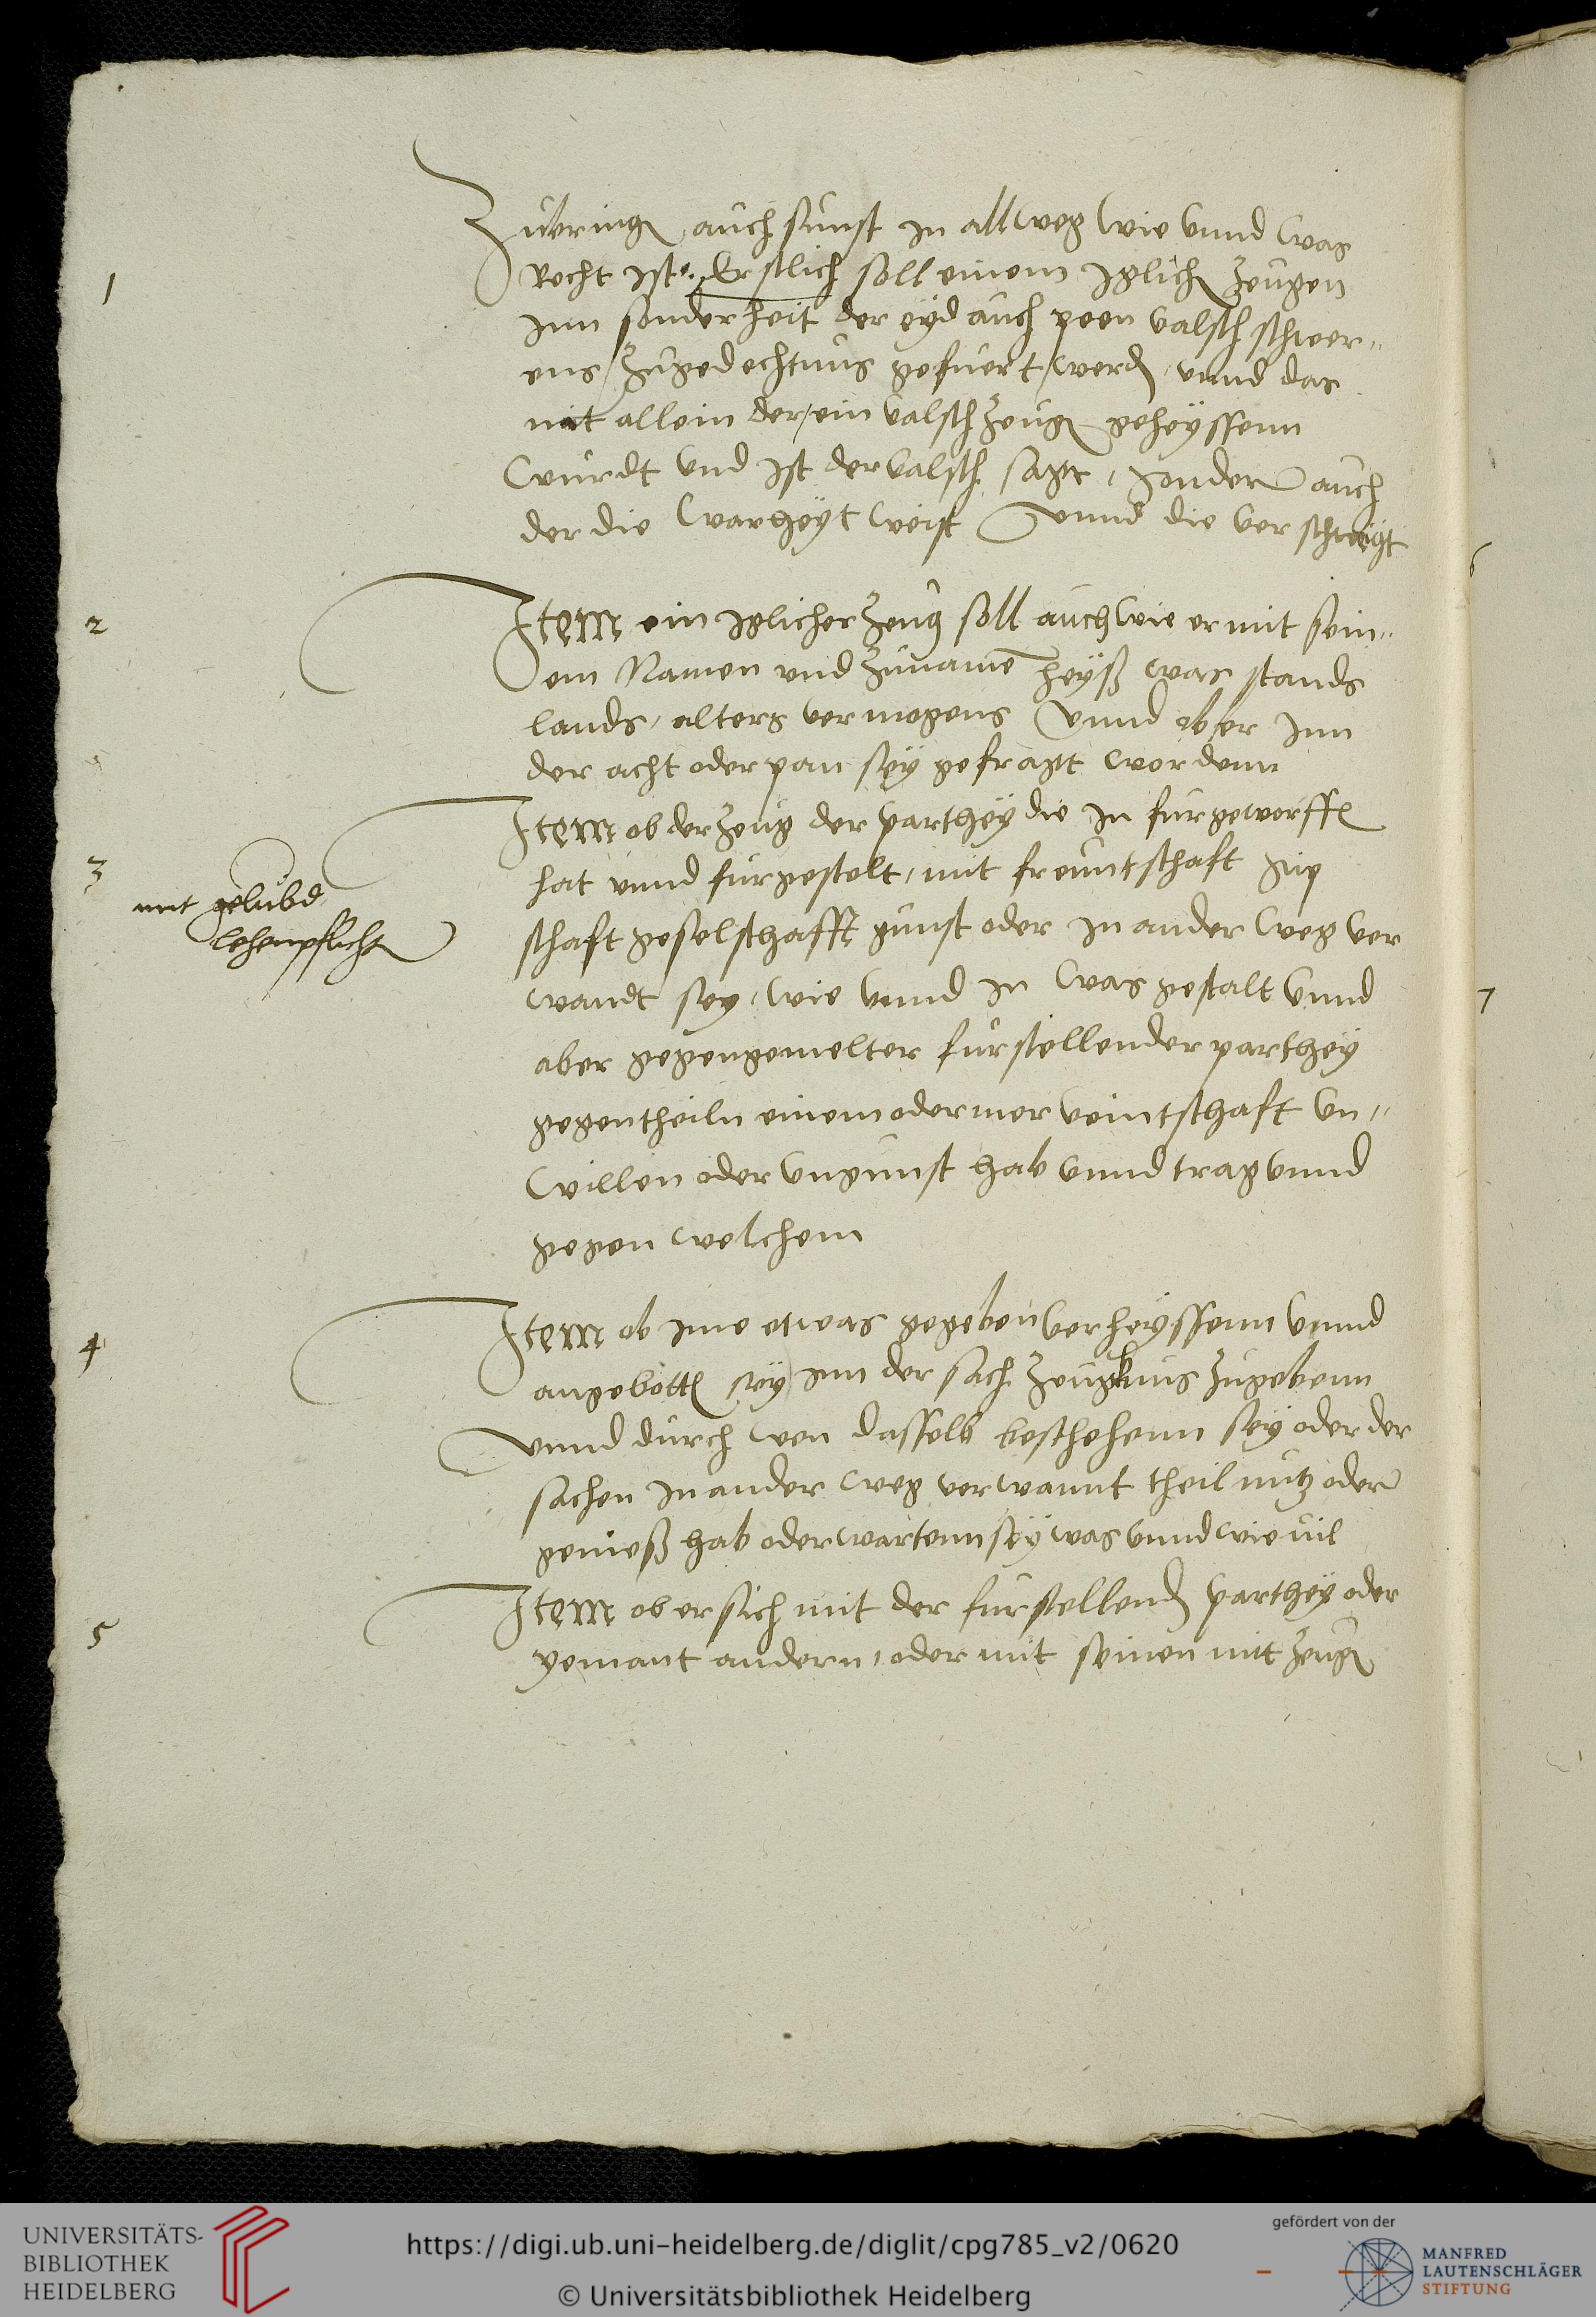 Zubringen auch sunst in allweg wie vnnd was
1
Recht ist. Erstlich soll einem iglichen zeugen
inn sonderheit der eyd auch peen valsch schwer-
ens zugedechtnus gefuert werden, vnnd das
nit allein der ein valsch zeug geheyssenn
wurdt vnd ist der valsch sagt, sonder auch
der die warheyt weist vnnd die verschweigt
2
Item ein iglicher zeug soll auch wie er mit sein-
em Namen vnd zunamen heyß was stands
lands, alters vermogens vnnd ob er inn
der acht oder pan sey gefragt wordenn
3
Item ob der zeug der parthey die in furgeworffen
hat vnnd furgestelt, mit freuntschaft sip
mit gelubd
lehenpflicht
schaft geselschafft gunst oder in ander weg ver
wandt sey, wie vnnd in was gestalt vnnd
aber gegen gemelter furstellender parthey
gegentheiln einem oder mer veintschaft vn-
willen oder vngunst hab vnnd trag vnnd
gegen welchem
4
Item ob ime etwas gegeben verheyssenn vnnd
angebotten sey inn der sach zeugknus zugebenn
vnnd durch wen dasselb beschehenn sey oder der
sachen in ander weg verwannt theil nutz oder
genieß hab oder wartenn sey was vnnd wie vil
5
Item ob er sich mit der furstellenden parthey oder
yemant andern, oder mit seinen mit zeugen
6
7
UNIVERSITÄTS-
BIBLIOTHEK
HEIDELBERG
https://digi.ub.uni-heidelberg.de/diglit/cpg785_v2/0620
© Universitätsbibliothek Heidelberg
gefördert von der
MANFRED
LAUTENSCHLÄGER
STIFTUNG